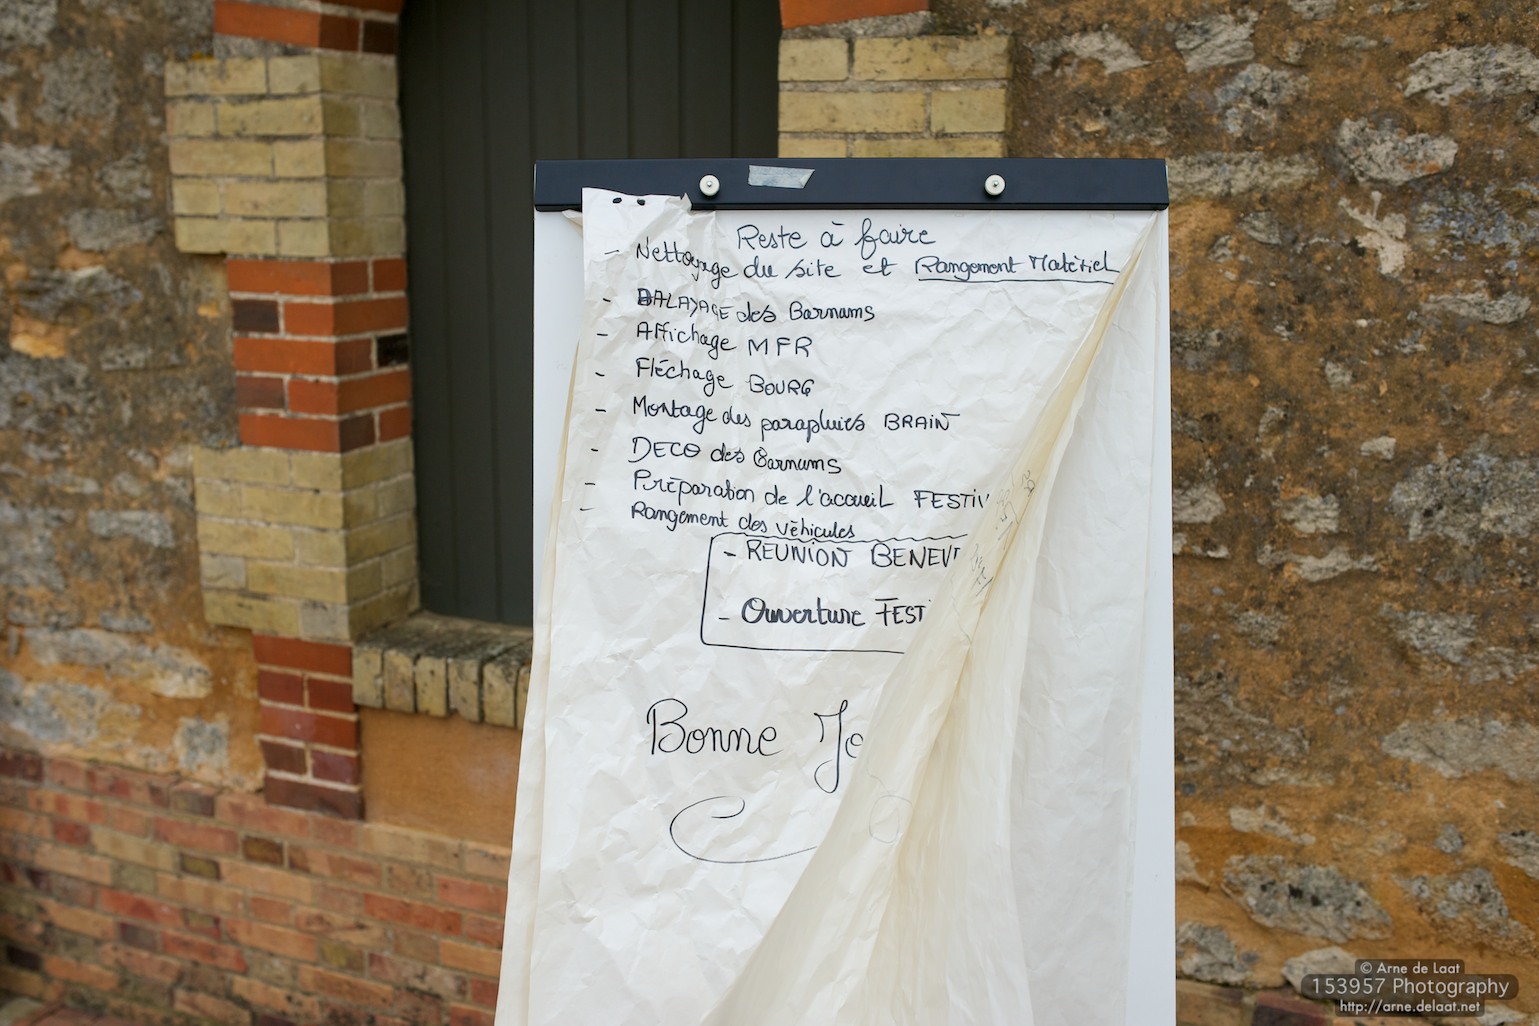 Reste à faire
- Nettoyage du site et Rangement Matériel
- BALAYAGE des Barnums
- Affichage MFR
- Fléchage BOURG
- Montage des parapluies BRAIN
- DECO des Barnums
- Préparation de l'accueil FESTIV
- Rangement des véhicules
- REUNION BENEV
- Ouverture FESTI
Bonne Jo
© Arne de Laat
153957 Photography
http://arne.delaat.net